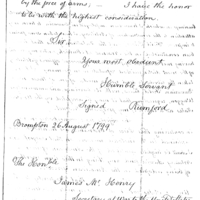 by the force of arms. I have the honor
to be with the highest consideration.
Sir
Your most obedient
Humble Servant
Signed Rumford
Brompton 26 August 1799
The Honble
James McHenry
Secretary of War to the